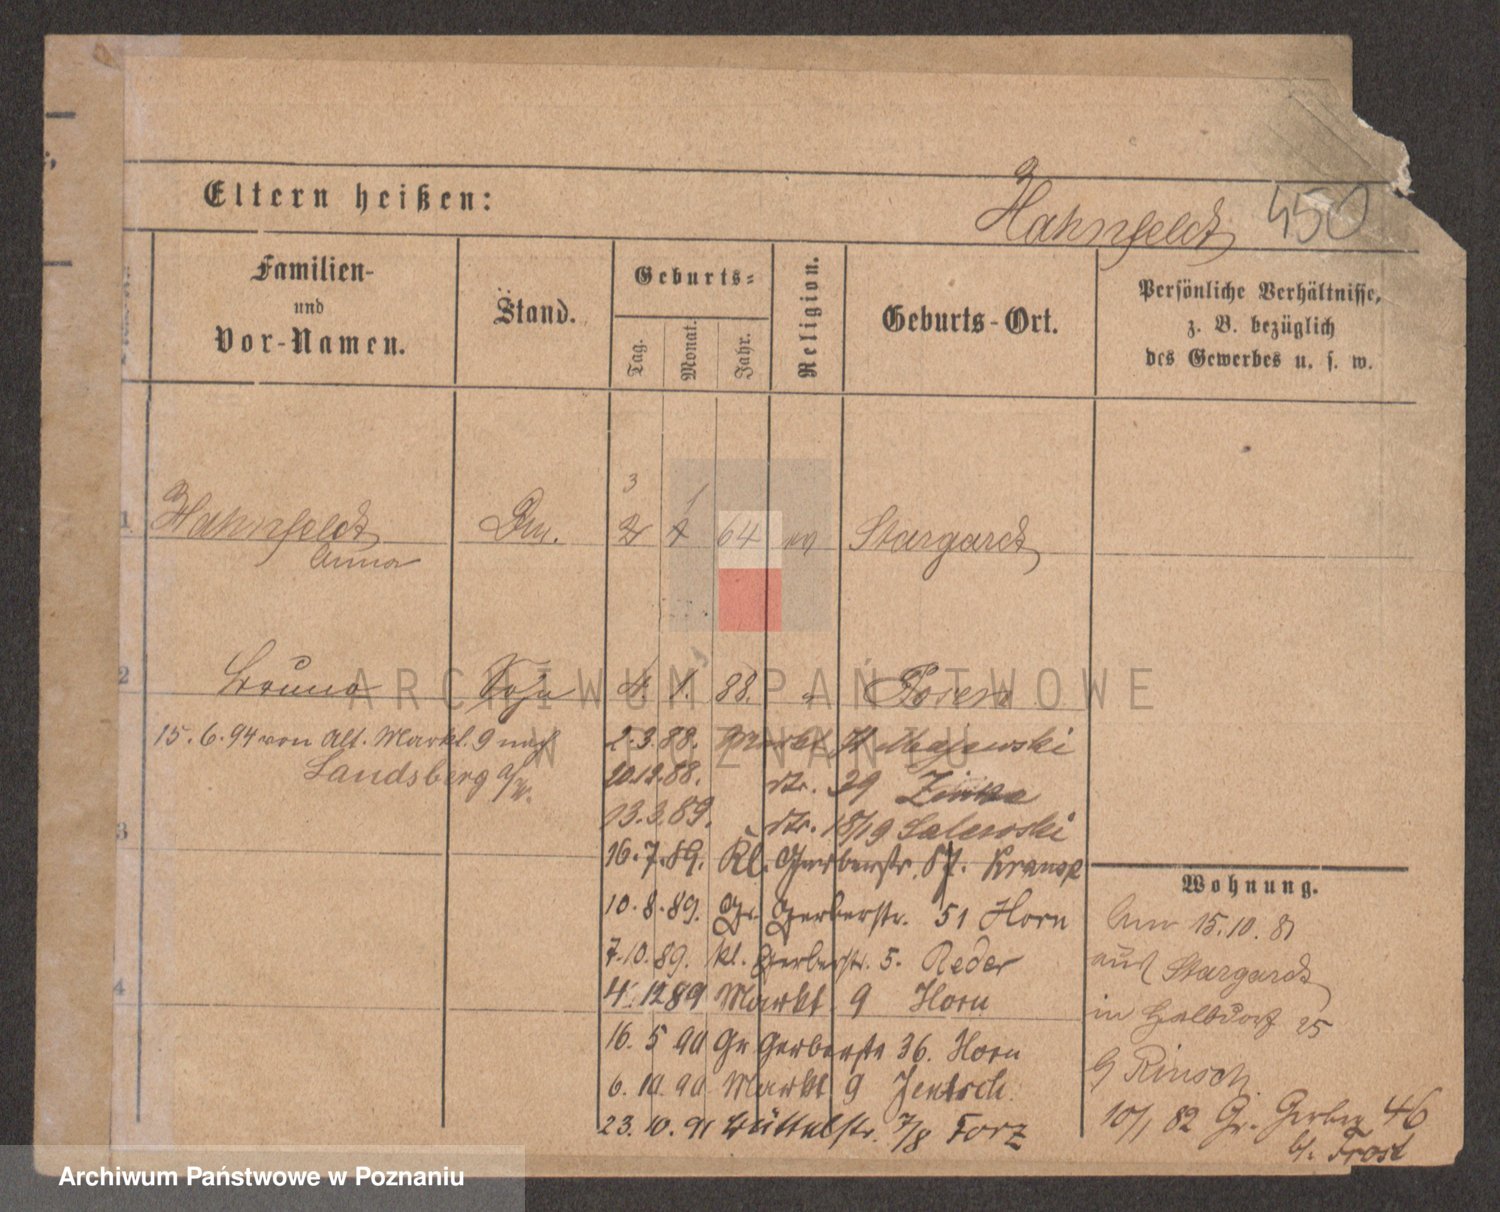 Eltern heißen:
Hahnfeldt 450
Familien-
und
Vor-Namen.
Stand.
Geburts-
Tag.
Monat.
Jahr.
Religion.
Geburts-Ort.
Persönliche Verhältnisse,
z. B. bezüglich
des Gewerbes u. s. w.
3 1
1 Hahnfeldt 64 ev Stargardt
Anna
2 Bruno Sohn 4. 1. 88. " Posen
15.6.94 von Alt. Markt. 9 nach
Landsberg a/W.
2.3.88. Markt Majewski
20.12.88. dto. 29
13.3.89. dto. 18/19 Salewski
3
16.7.89. Kl. Gerberstr.
10.8.89. Gr. Gerberstr. 51 Horn
7.10.89. Kl. Gerberstr. 5. Reder
4
4. 12 89 Markt 9 Horn
16. 5 90 Gr Gerberstr 36. Horn
6. 10. 90 Markt 9 Jentsch.
23. 10. 91 Büttelstr. 7/8 Torz
Wohnung.
15.10.81
aus Stargardt
in Halbdorf 25
b/ Rinsch
10/1 82 Gr. Gerber 46
b/. Frost
ARCHIWUM PAŃSTWOWE
W POZNANIU
Archiwum Państwowe w Poznaniu